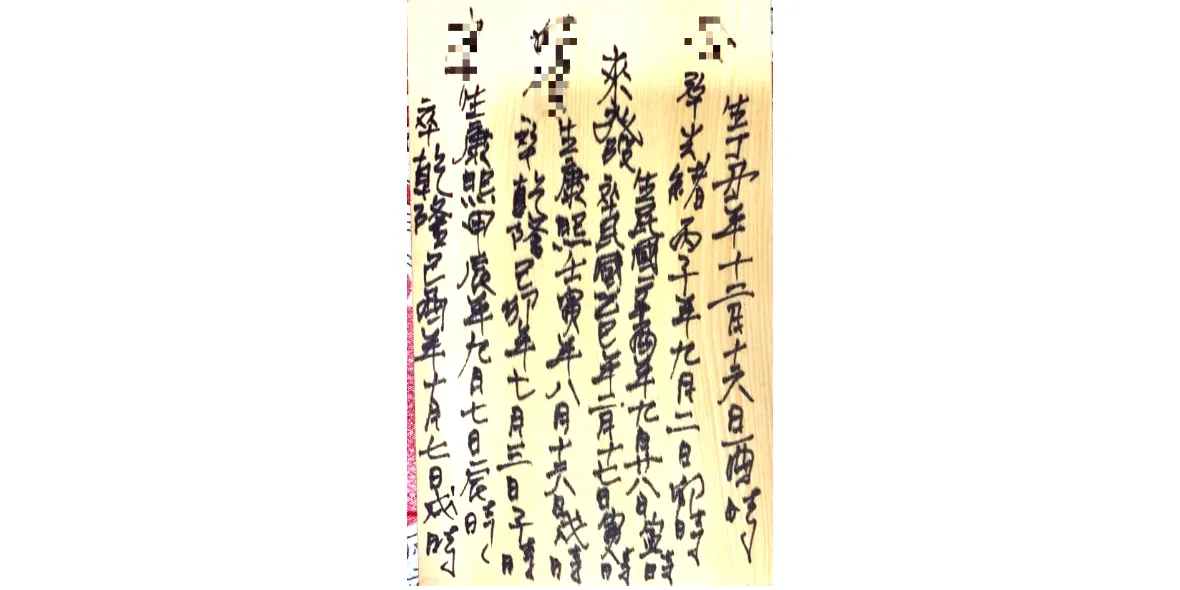 生丁丑年十二月十六日酉時
卒光緒丙子年九月二日卯時
生民國 酉年九月廿八日寅時
來發
卒民國乙巳年二月十七日寅時
生康熙壬寅年八月十六日戌時
卒乾隆己卯年七月三日子時
生康熙甲辰年九月七日辰時
卒乾隆己酉年十月七日戌時